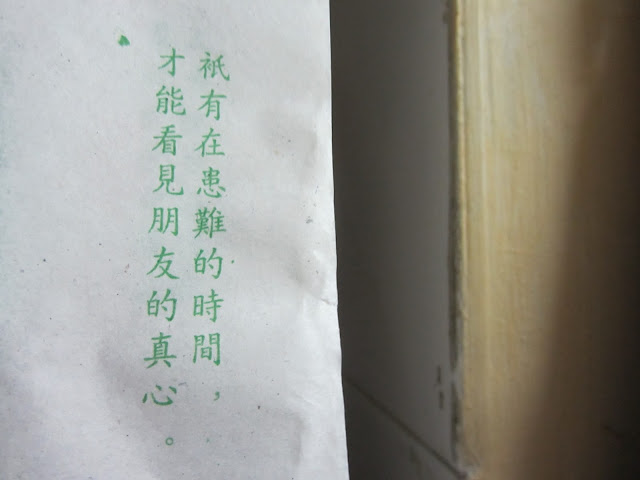 祇有在患難的時間，
才能看見朋友的真心。